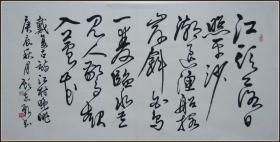 江頭落日
照平沙
潮退漁船擱
岸斜白鳥
一雙臨水立
見人驚起
入蘆花
戴復古詩江村晚眺
庚辰秋月